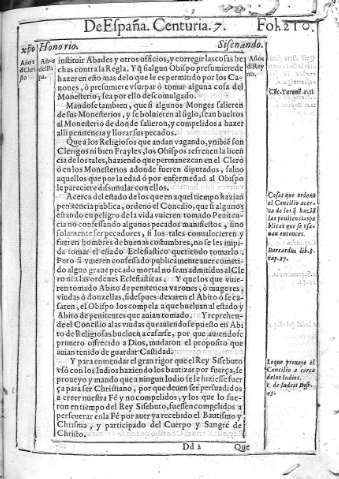 De España. Centuria. 7. Fol. 210.
xp̃o Honorio. Sisenando.
Años
de Rey
no.
instituir Abades y otros officios, y corregir las cosas he
chas contra la Regla. Y q̃ si algun Obispo presumiere de
hazer en esto mas de lo que les es permitido por los Ca-
nones, ò presumere vsurpar ò tomar alguna cosa del
Monesterio, sea por ello descomulgado.
Mandose tambien, que si algunos Monges salieren
de sus Monesterios, y se boluieren al siglo, sean bueltos
al Monesterio de donde salieron, y compelidos a hazer
alli penitencia y llorar sus pecados.
Que a los Religiosos que andan vagando, y ni biẽ son
Clerigos ni bien Frayles, los Obispos refrenen la licen
cia de los tales, haziendo que permanezcan en el Clero
ò en los Monesterios adonde fueren diputados, saluo
aquellos que por la edad ò por enfermedad al Obispo
le pareciere dissimular con ellos.
Acerca del estado de los que en aquel tiempo hazian
penitencia publica, ordeno el Concilio, que si algunos
estando en peligro de la vida vuieren tomado Peniten
cia no confessando algunos pecados manifiestos, sino
solamente ser pecadores, si los tales conualecieren y
fueren hombres de buenas costumbres, no se les impi-
da tomar el estado Ecclesiastico queriendo tomarlo.
Pero si vuieren confessado publicamente auer cometi-
do algun graue pecado mortal no sean admitidos al Cle
ro ni a las ordenes Ecclesiasticas. Y que los que vuie-
ren tomado Abito de penitencia varones, ò mugeres,
viudas ò donzellas, si despues dexaren el Abito ò se ca-
saren, el Obispo los compela a que bueluan al estado y
Abito de penitentes que auian tomado. Y reprehen-
de el Concilio a las viudas que auiendose puesto en Abi
to de Religiosas buelué a casarse, por que auiendose
primero offrecido a Dios, mudaron el proposito que
auian tenido de guardar Castidad.
Y para enmendar el gran rigor que el Rey Sisebuto
vsò con los Iudios haziendo los bautizar por fuerça, se
proueyo y mando que a ningun Iudio se le hiziesse fuer
ça para ser Christiano, por que deuen ser persuadidos
a creer nuestra Fé y no compelidos, y los que lo fue-
ron en tiempo del Rey Sisebuto, fuessen compelidos a
perseuerar en la Fé por auer ya recebido el Bautismo y
Chrisma, y participado del Cuerpo y Sangre de
Christo.
Cosas que ordeno
el Concilio acer-
ca de los q̃ hazian
las penitencias pu
blicas que se vsa-
uan entonces.
Loque proueyo el
Concilio a cerca
de los Iudios.
Dd 2 Que